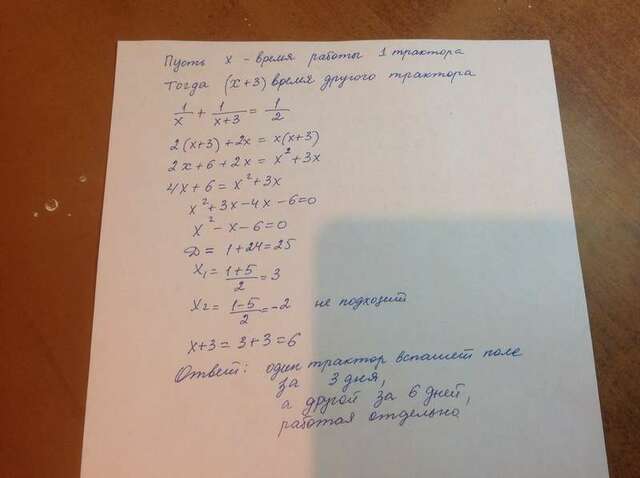 Пусть x - время работы 1 трактора
Тогда (x+3) время другого трактора
1/x + 1/(x+3) = 1/2
2(x+3)+2x = x(x+3)
2x+6+2x = x²+3x
4x+6 = x²+3x
x²+3x-4x-6=0
x²-x-6=0
D = 1+24=25
x₁ = (1+5)/2 = 3
x₂ = (1-5)/2 = -2 не подходит
x+3 = 3+3 = 6
Ответ: один трактор вспашет поле
за 3 дня,
а другой за 6 дней,
работая отдельно.